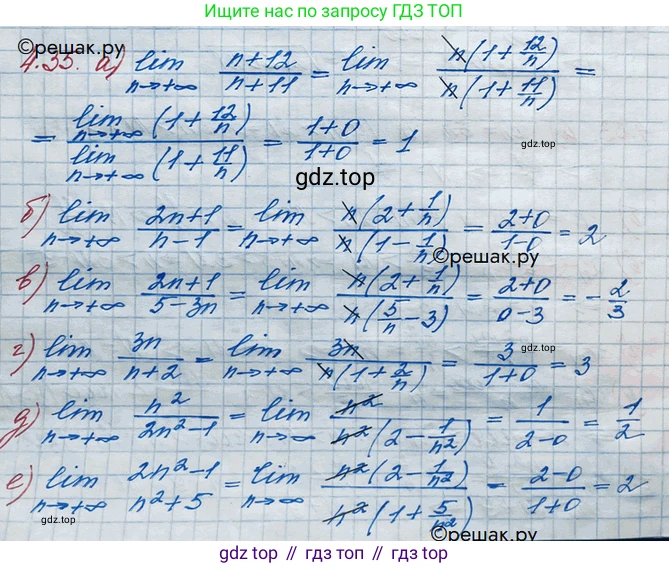 Ищите нас по запросу ГДЗ ТОП
gdz.top
©решак.ру
4.35. а) lim n→+∞ (n+12)/(n+11) = lim n→+∞ n(1+12/n)/n(1+11/n) =
= lim n→+∞ (1+12/n) / lim n→+∞ (1+11/n) = (1+0)/(1+0) = 1
gdz.top
б) lim n→+∞ (2n+1)/(n-1) = lim n→+∞ n(2+1/n)/n(1-1/n) = (2+0)/(1-0) = 2
©решак.ру
в) lim n→+∞ (2n+1)/(5-3n) = lim n→+∞ n(2+1/n)/n(5/n-3) = (2+0)/(0-3) = -2/3
г) lim n→+∞ 3n/(n+2) = lim n→+∞ 3n/n(1+2/n) = 3/(1+0) = 3
д) lim n→+∞ n²/(2n²-1) = lim n→+∞ n²/n²(2-1/n²) = 1/(2-0) = 1/2
е) lim n→+∞ (2n²-1)/(n²+5) = lim n→∞ n²(2-1/n²)/n²(1+5/n²) = (2-0)/(1+0) = 2
©решак.ру
gdz.top // гдз.топ // gdz.top